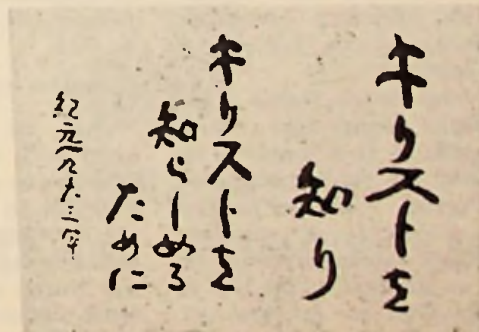 キリストを
知り
キリストを
知らしめる
ために
紀元一九六三年